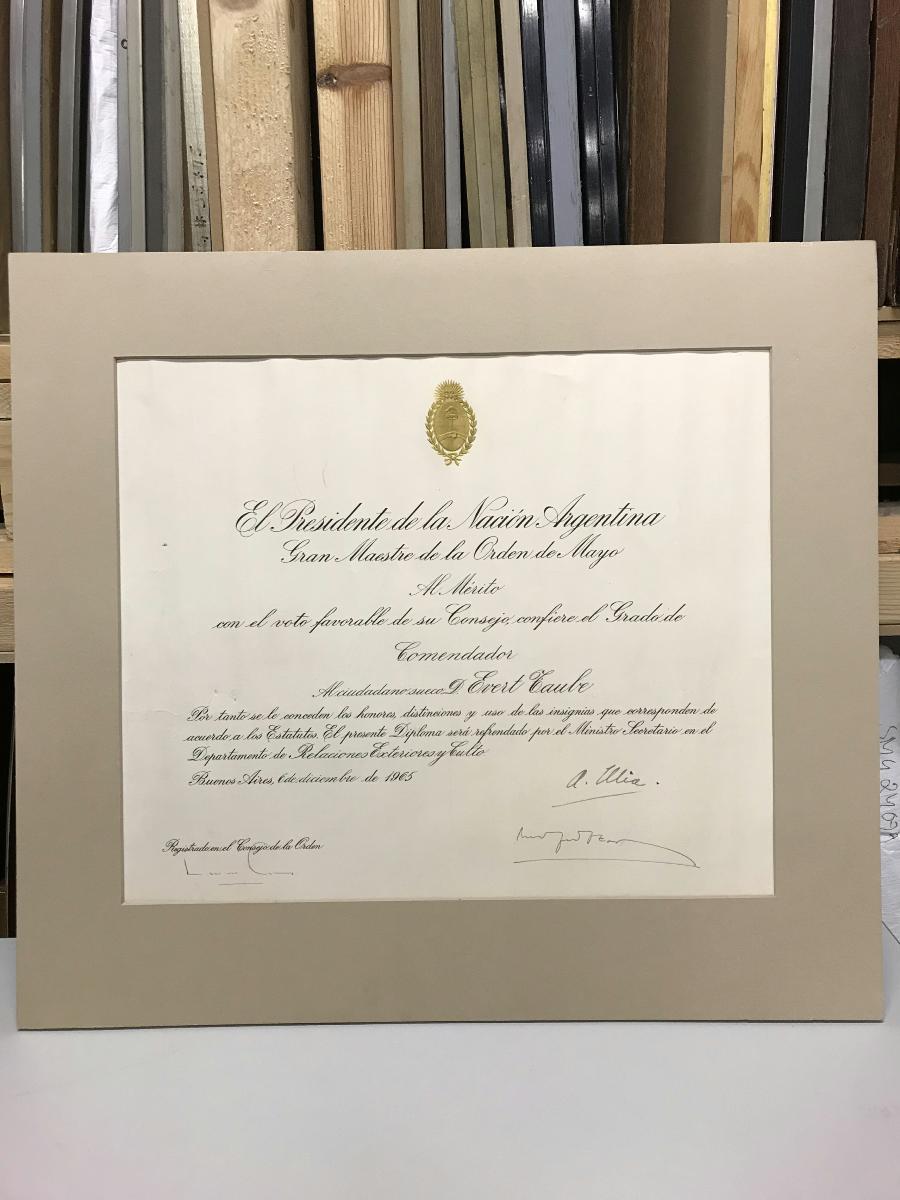 El Presidente de la Nación Argentina
Gran Maestre de la Orden de Mayo
Al Mérito
con el voto favorable de su Consejo, confiere el Grado de
Comendador
Al ciudadano sueco D. Evert Taube
Por tanto se le conceden los honores, distinciones y uso de las insignias que corresponden de
acuerdo a los Estatutos. El presente Diploma será refrendado por el Ministro Secretario en el
Departamento de Relaciones Exteriores y Culto
Buenos Aires, 6 de diciembre de 1965
A. Illia.
Registrado en el Consejo de la Orden